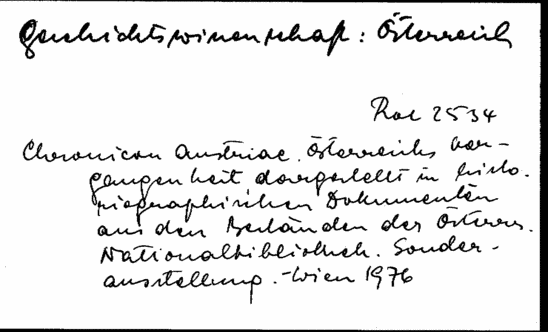 Geschichtswissenschaft: Österreich
Rok 2534
Chronicon Austriae. Österreichs Ver-
gangenheit dargestellt in histo-
riographischen Dokumenten
aus den Beständen der Österr.
Nationalbibliothek. Sonder-
ausstellung.-Wien 1976